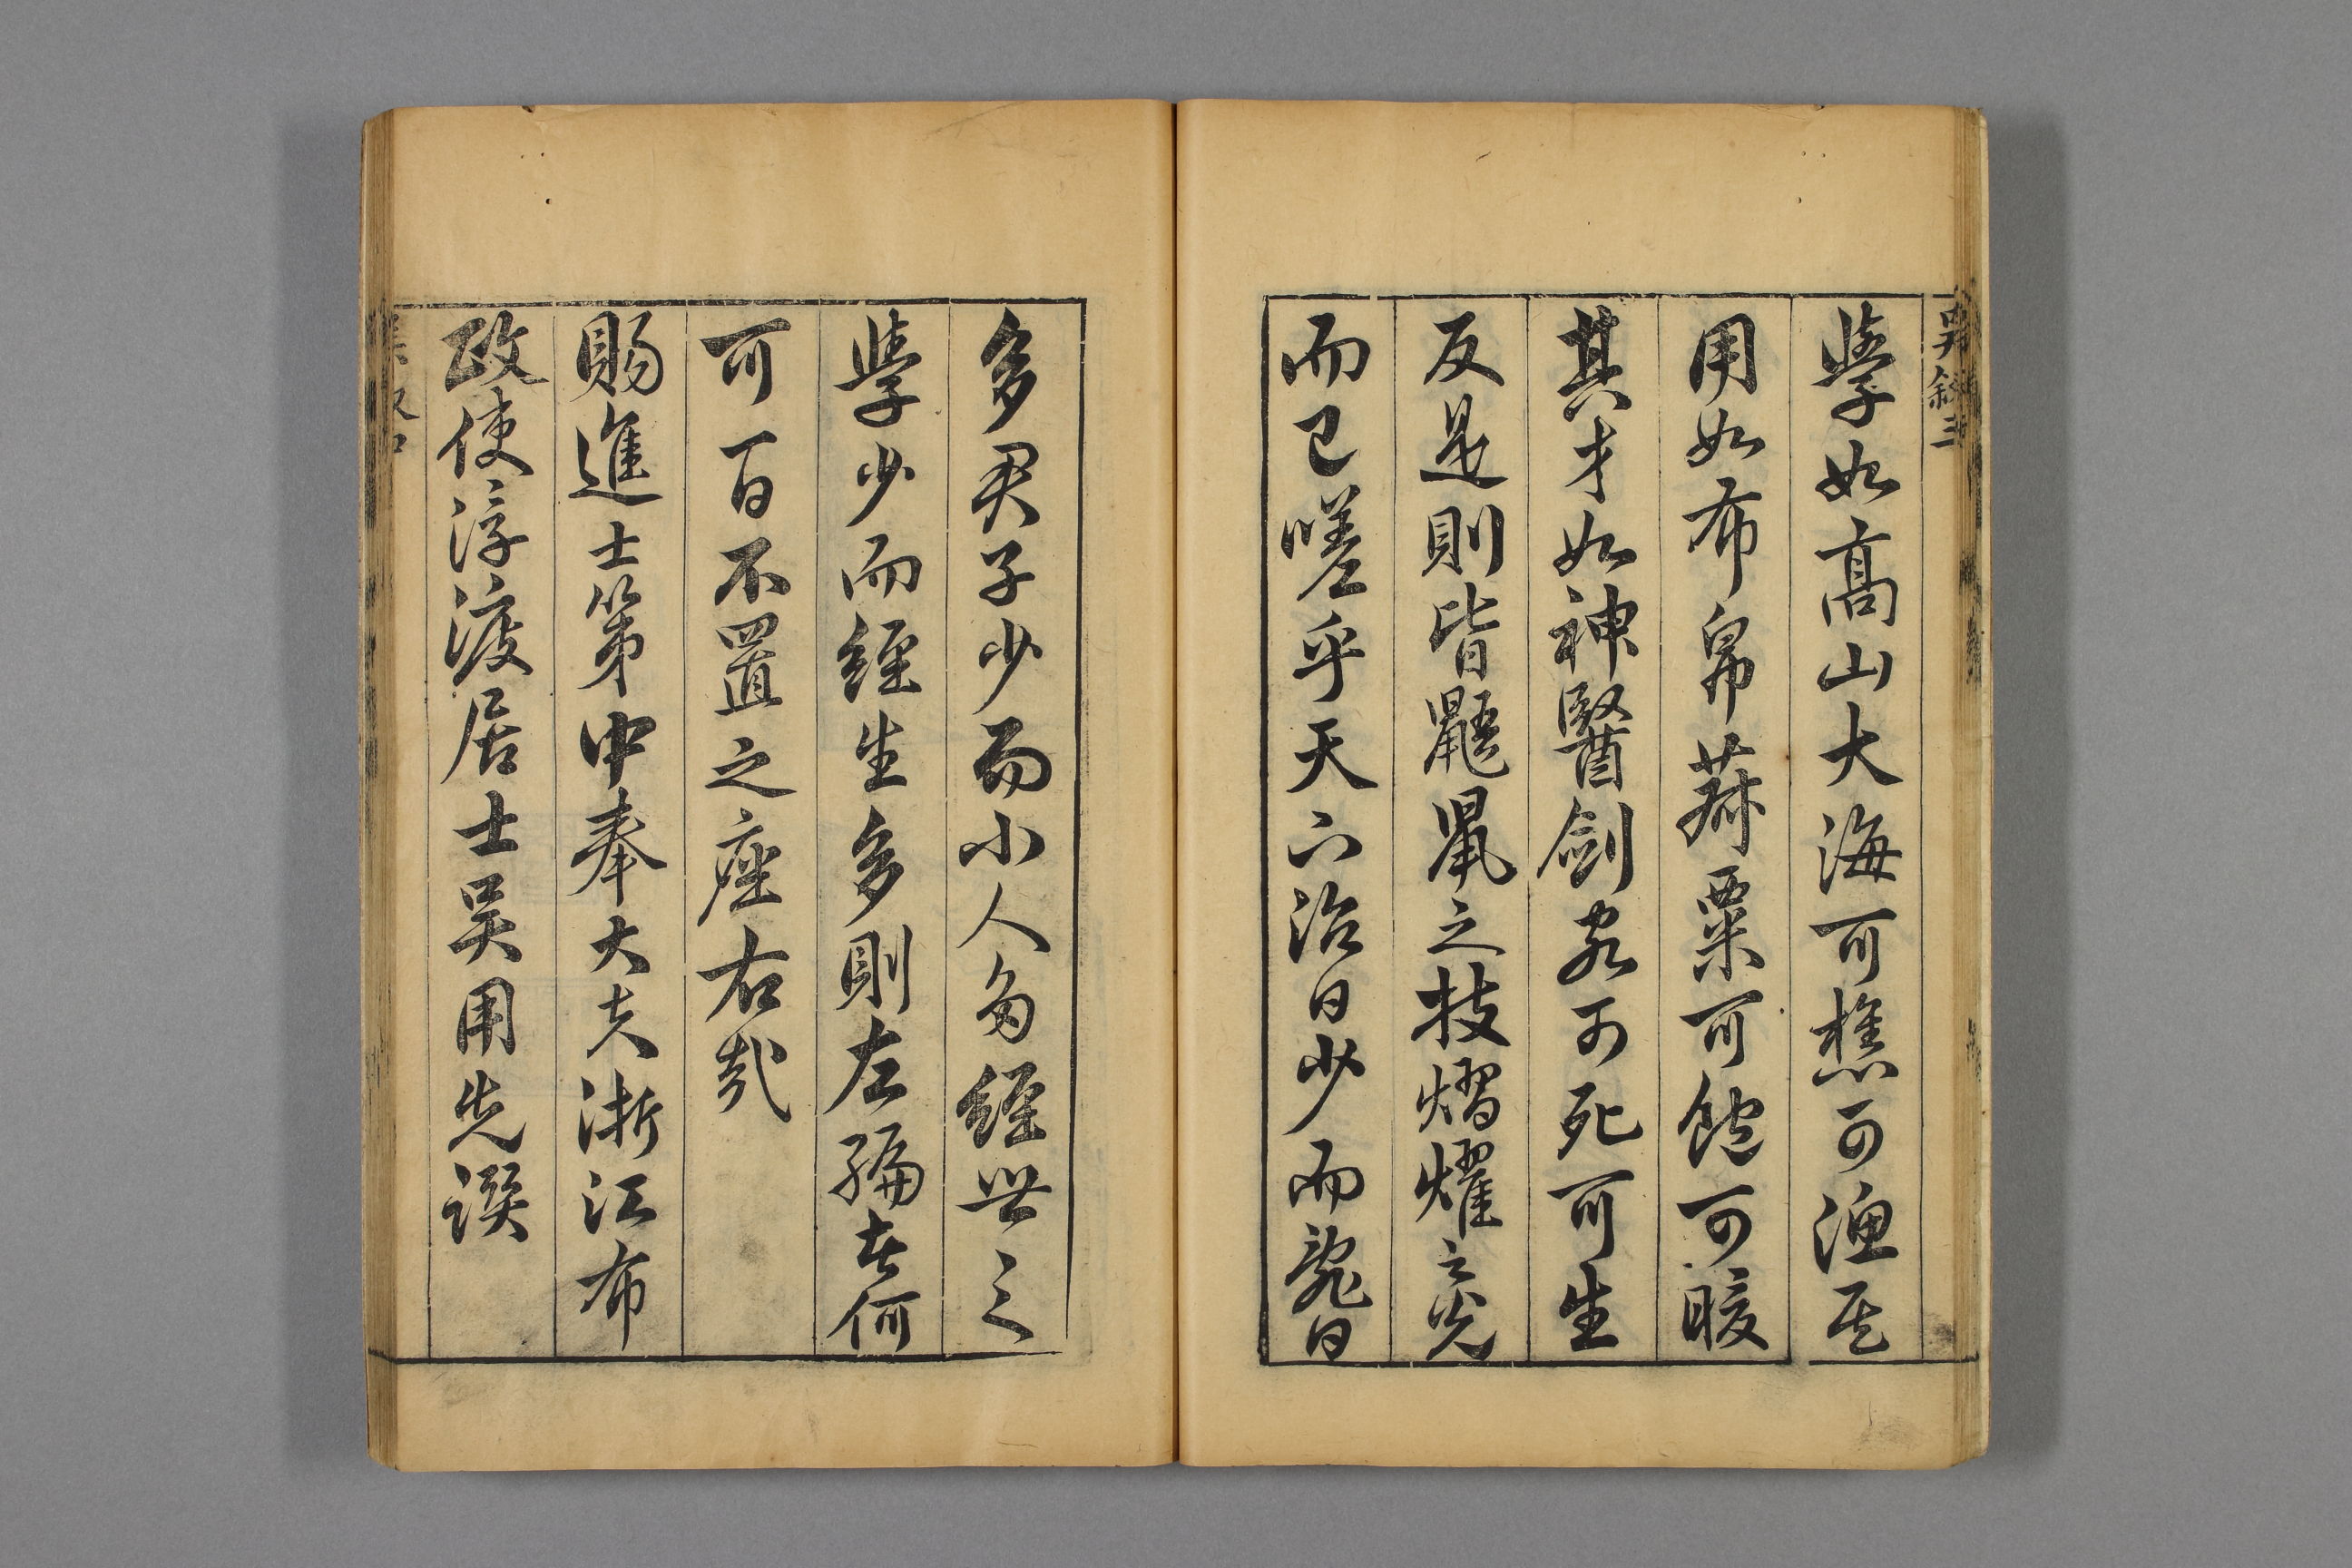 學如高山大海可樵可漁其
用如布帛菽粟可飽可暖
其才如神醫劍客可死可生
反是則皆鼯鼠之技熠燿之光
而已嗟乎天下治日少而亂日
多君子少而小人多經世之
學少而經生多則左編者何
可一日不置之座右哉
賜進士第中奉大夫浙江布
政使浮渡居士吳用先譔